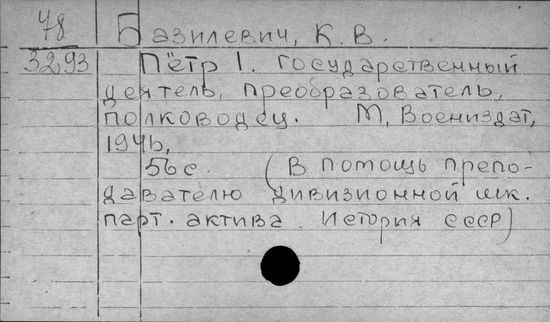 78 Базилевич, К. В.
3293 Пётр I. Государственный
деятель, преобразователь,
полководец. М, Воениздат,
1946,
56 с. (В помощь препо-
давателю дивизионной шк.
парт. актива. История СССР)